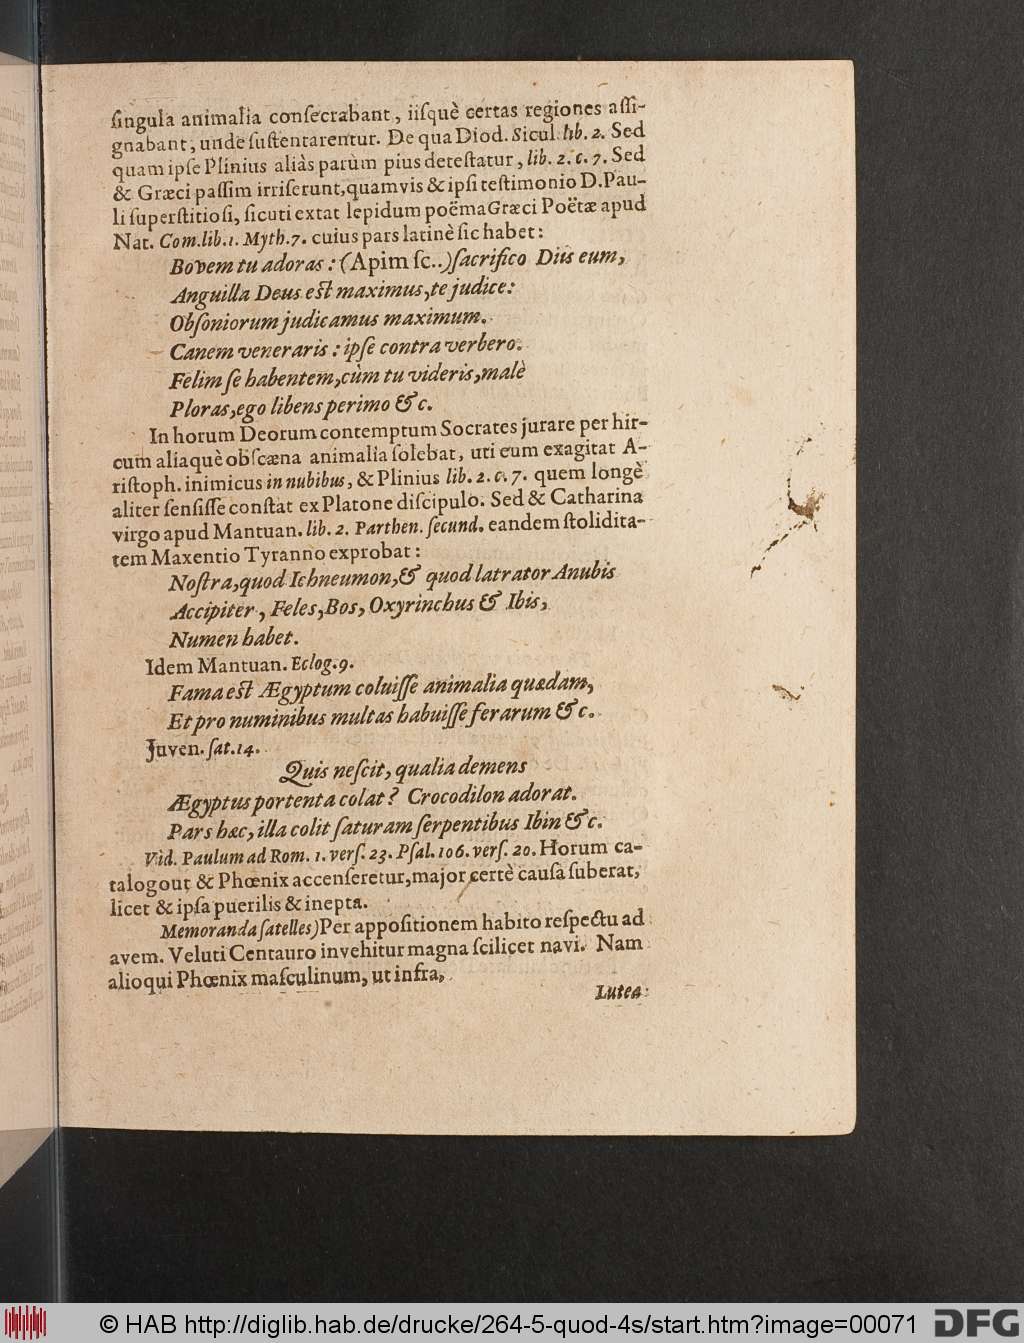 ſingula animalia conſecrabant, iiſquè certas regiones aſſi-
gnabant, unde ſuſtentarentur. De qua Diod. Sicul. lib. 2. Sed
quam ipſe Plinius aliàs parùm pius deteſtatur, lib. 2. c. 7. Sed
& Græci paſſim irriſerunt, quamvis & ipſi teſtimonio D. Pau-
li ſuperſtitioſi, ſicuti extat lepidum poëma Græci Poëtæ apud
Nat. Com. lib. 1. Myth. 7. cuius pars latinè ſic habet:
Bovem tu adoras: (Apim ſc..) ſacrifico Diis eum,
Anguilla Deus eſt maximus, te judice:
Obſoniorum judicamus maximum.
Canem veneraris: ipſe contra verbero.
Felim ſe habentem, cùm tu videris, malè
Ploras, ego libens perimo & c.
In horum Deorum contemptum Socrates jurare per hir-
cum aliaquè obſcæna animalia ſolebat, uti eum exagitat A-
riſtoph. inimicus in nubibus, & Plinius lib. 2. c. 7. quem longè
aliter ſenſiſſe conſtat ex Platone diſcipulo. Sed & Catharina
virgo apud Mantuan. lib. 2. Parthen. ſecund. eandem ſtolidita-
tem Maxentio Tyranno exprobat:
Noſtra, quod Ichneumon, & quod latrator Anubis
Accipiter, Feles, Bos, Oxyrinchus & Ibis,
Numen habet.
Idem Mantuan. Eclog. 9.
Fama eſt Ægyptum coluiſſe animalia quædam,
Et pro numinibus multas habuiſſe ferarum & c.
Juven. ſat. 14.
Quis neſcit, qualia demens
Ægyptus portenta colat? Crocodilon adorat.
Pars hæc, illa colit ſaturam ſerpentibus Ibin & c.
Vid. Paulum ad Rom. 1. verſ. 23. Pſal. 106. verſ. 20. Horum ca-
talogout & Phœnix accenſeretur, major certè cauſa ſuberat,
licet & ipſa puerilis & inepta.
Memoranda ſatelles) Per appoſitionem habito reſpectu ad
avem. Veluti Centauro invehitur magna ſcilicet navi. Nam
alioqui Phœnix maſculinum, ut infra,
Lutea
© HAB http://diglib.hab.de/drucke/264-5-quod-4s/start.htm?image=00071
DFG